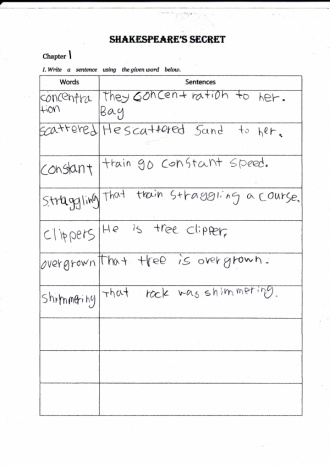 SHAKESPEARE'S SECRET
Chapter 1
1. Write a sentence using the given word below.
Words Sentences
concentra
tion
They concentration to her.
Bag
scattered He scattered sand to her.
constant train go constant speed.
straggling That train straggling a course.
clippers He is tree clipper.
overgrown That tree is overgrown.
shimmering That rock was shimmering.